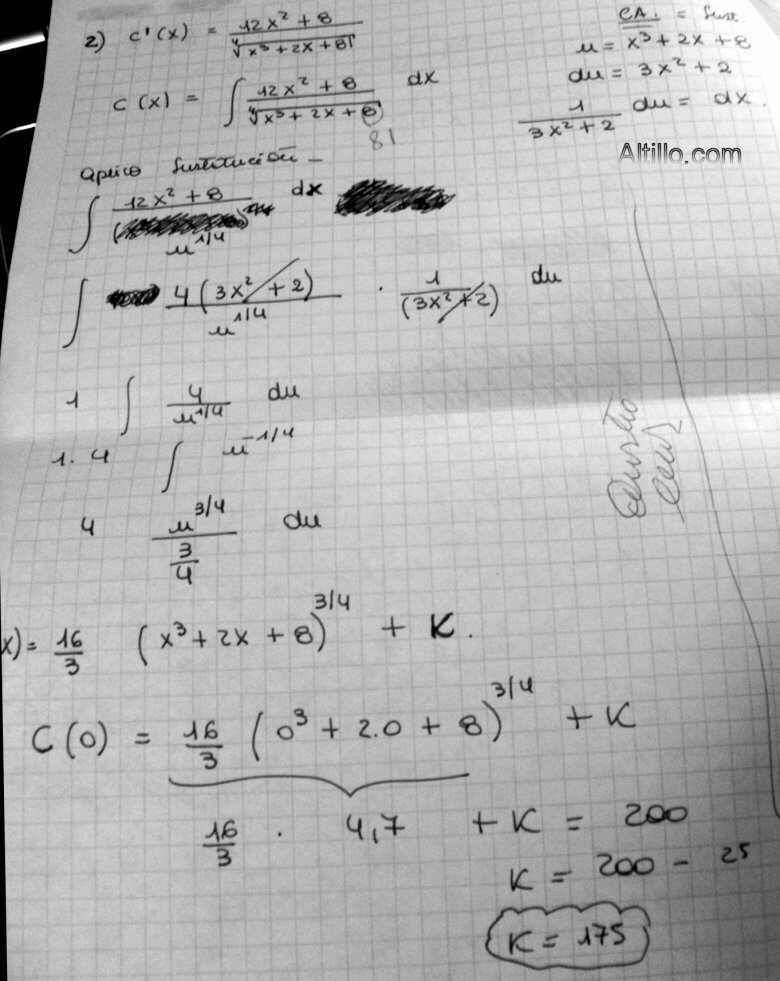 2) C'(x) = 12x² + 8 / ∜x³ + 2x + 81
C.A. = Sust.
u = x³ + 2x + 8
du = 3x² + 2
1 / 3x² + 2 du = dx.
C(x) = ∫ 12x² + 8 / ∜x³ + 2x + 8 dx
81
Altillo.com
aplico sustitución
∫ 12x² + 8 / u^1/4 dx
∫ 4(3x² + 2) / u^1/4 · 1 / (3x² + 2) du
1 ∫ 4 / u^1/4 du
1. 4 ∫ u^-1/4
4 u^3/4 / 3/4 du
x) = 16/3 (x³ + 2x + 8)^3/4 + K.
C(0) = 16/3 (0³ + 2.0 + 8)^3/4 + K
16/3 · 4,7 + K = 200
K = 200 - 25
K = 175